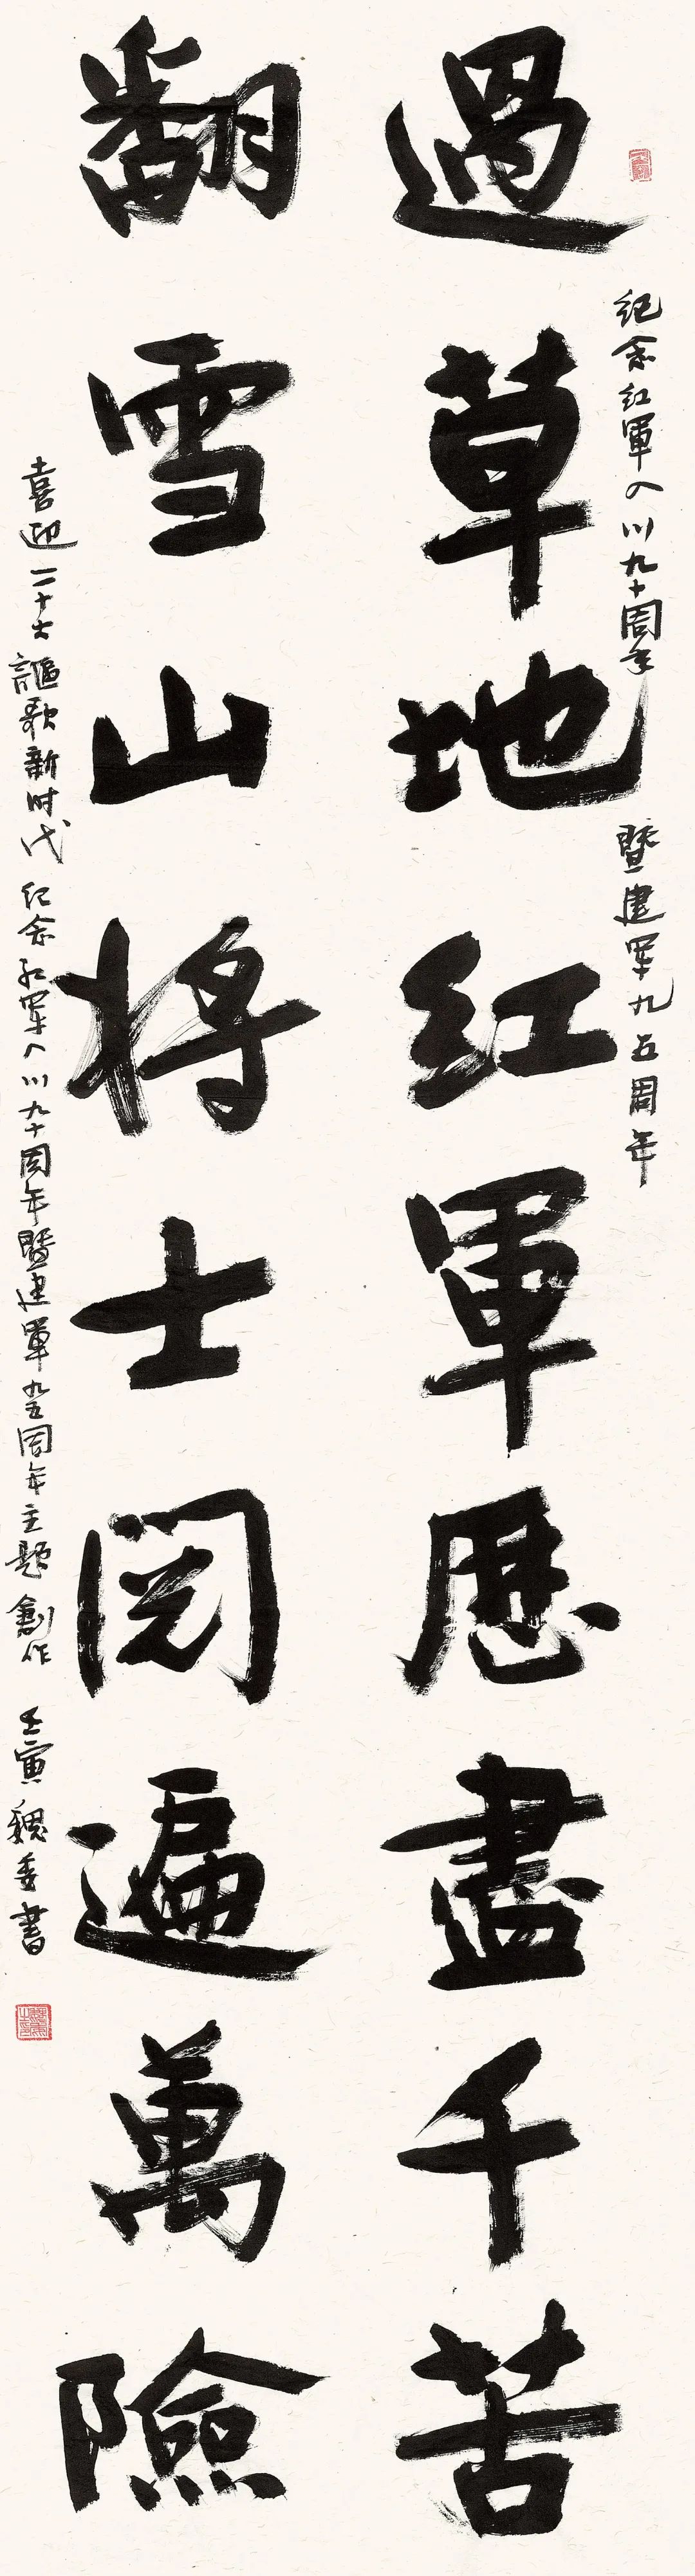 纪念红軍入川九十周年 暨建军九五周年
過草地红軍歷盡千苦
翻雪山将士閱遍萬險
喜迎二十大 謳歌新时代 纪念红军入川九十周年暨建軍九五周年主题創作 壬寅 魏委書